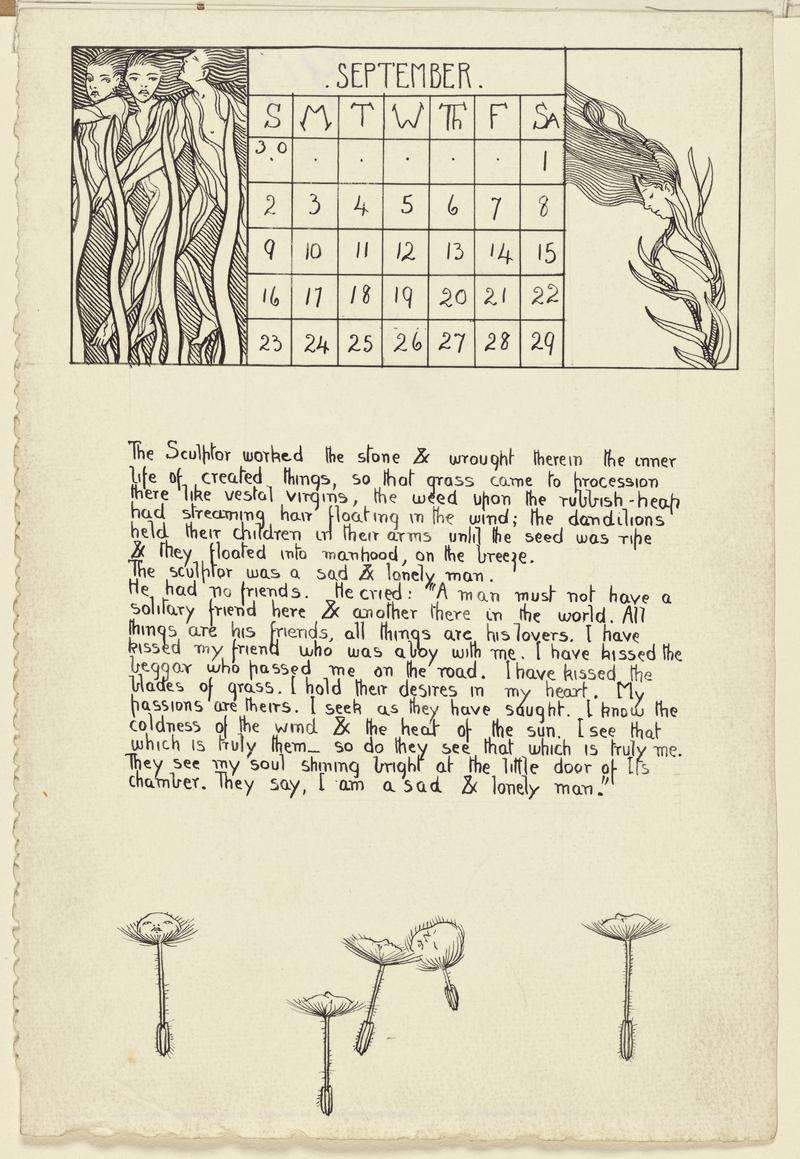 . SEPTEMBER .
S M T W Th F SA
30 . . . . . 1
2 3 4 5 6 7 8
9 10 11 12 13 14 15
16 17 18 19 20 21 22
23 24 25 26 27 28 29
The Sculptor worked the stone & wrought therein the inner
life of created things, so that grass came to procession
there like vestal virgins, the weed upon the rubbish-heap
had streaming hair floating in the wind; the dandilions
held their children in their arms until the seed was ripe
& they floated into manhood, on the breeze.
The sculptor was a sad & lonely man.
He had no friends. He cried: "A man must not have a
solitary friend here & another there in the world. All
things are his friends, all things are his lovers. I have
kissed my friend who was a boy with me. I have kissed the
beggar who passed me on the road. I have kissed the
blades of grass. I hold their desires in my heart. My
passions are theirs. I seek as they have sought. I know the
coldness of the wind & the heat of the sun. I see that
which is truly them_ so do they see that which is truly me.
They see my soul shining bright at the little door of Its
chamber. They say, I am a sad & lonely man."